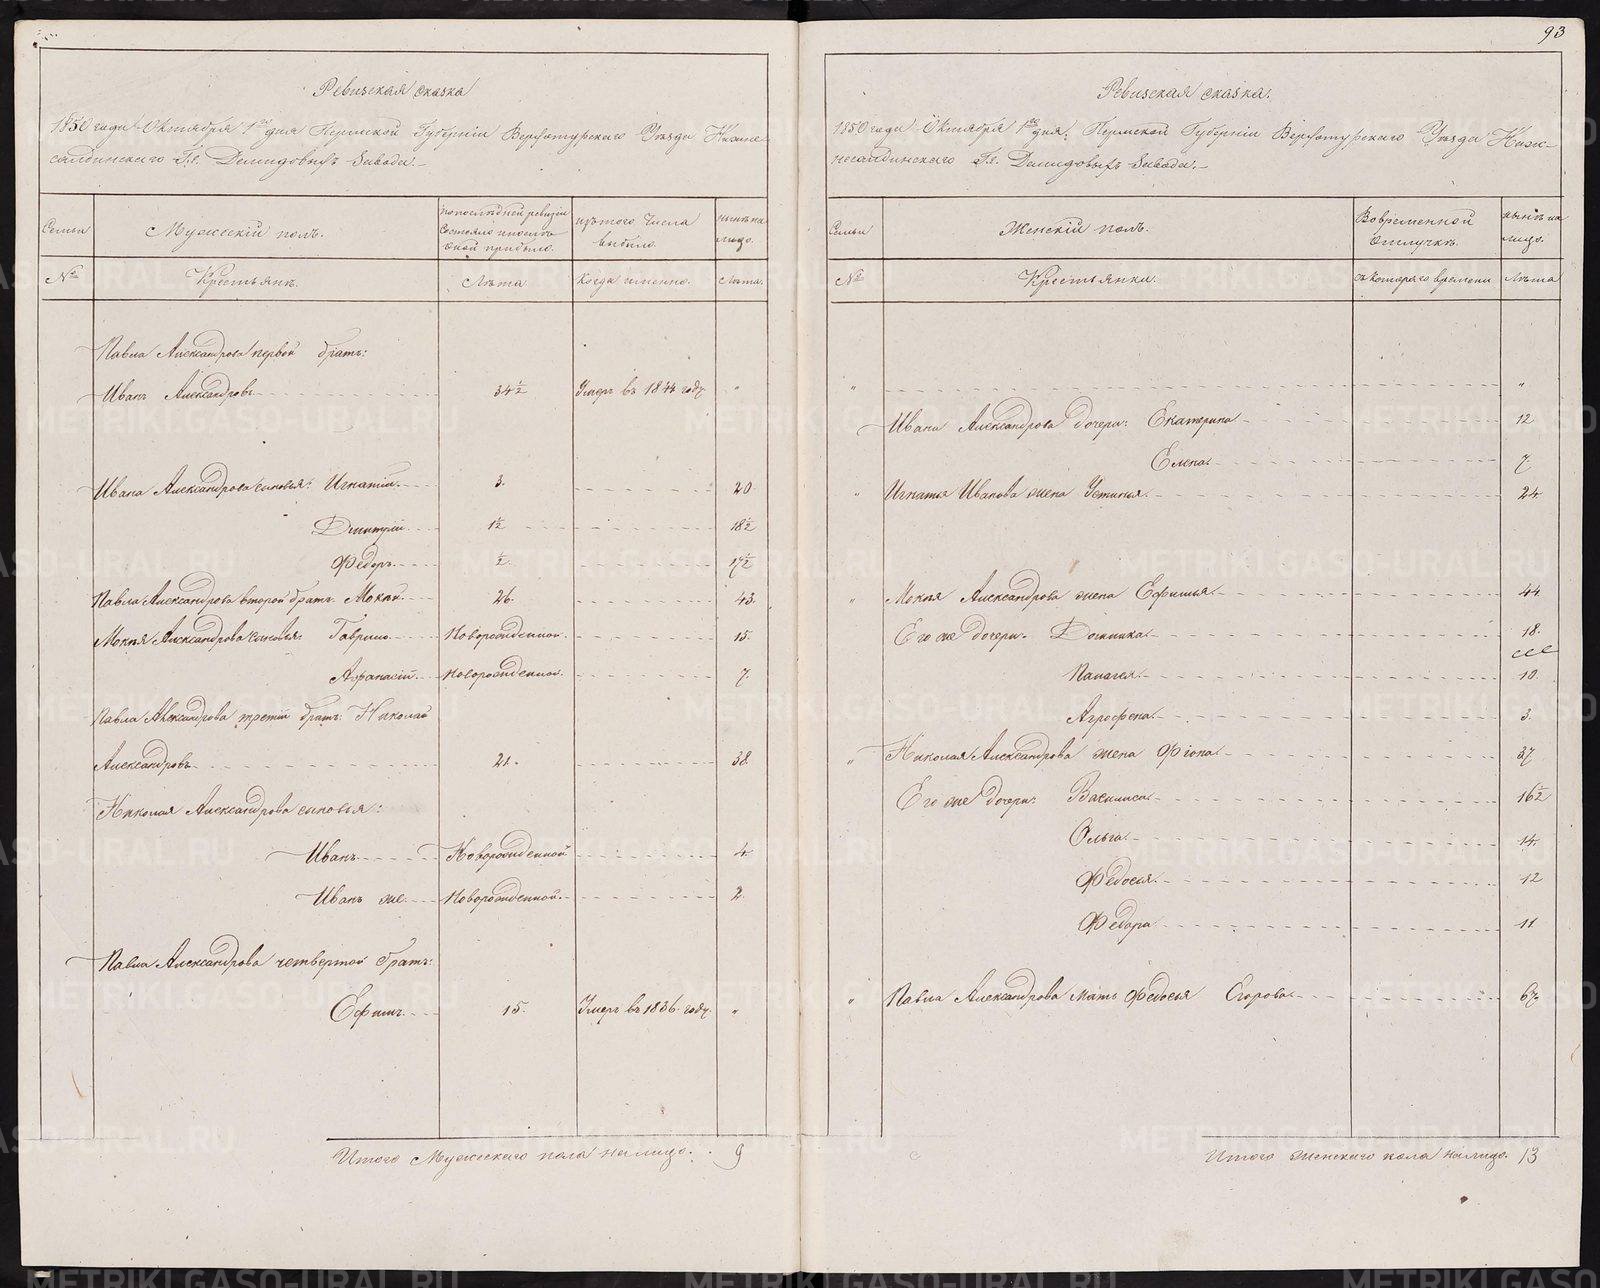 Ревизская сказка
1850 года Октября 1го дня Пермской Губерніи Верхотурскаго Уѣзда Нижне
салдинскаго Гг. Демидовыхъ Завода.
Семьи
Мужескій полъ.
по последней ревизіи
состояло и после
оной прибыло.
изъ того числа
выбыло.
нынѣ на
лицо.
№
Крестьянъ.
Лѣта.
Когда именно.
Лѣта.
Павла Александрова первой братъ:
Иванъ Александровъ 34½ Умеръ въ 1844 году "
Ивана Александрова сыновья: Игнатій. 3. 20
Дмитрій 1½ 18½
Федоръ ½. 17½
Павла Александрова второй братъ Мокій 26. 43.
Мокія Александрова сыновья: Гаврило Новорожденной. 15.
Афанасій Новорожденной. 7.
Павла Александрова третій братъ: Николай
Александровъ 21. 38
Николая Александрова сыновья:
Иванъ Новорожденной 4.
Иванъ же Новорожденной. 2.
Павла Александрова четвертой братъ:
Ефимъ 15. Умеръ въ 1836. году. "
Итого Мужескаго пола налицо. 9
93
Ревизская сказка.
1850 года Октября 1го дня; Пермской Губерніи Верхотурскаго Уѣзда Ниж-
несалдинскаго Гг. Демидовыхъ Завода.
Семьи
Женскій полъ.
Во временной
отлучкѣ.
нынѣ на
лицо.
№
Крестьянки.
съ котораго времени
Лѣта
" "
Ивана Александрова дочери: Екатерина 12
Елена. 7.
" Игнатья Иванова жена Устинья. 24
" Мокія Александрова жена Ефимья. 44
Его же дочери. Домника. 18.
Палагея. 10.
Агрофена. 3.
" Николая Александрова жена Фіона. 37
Его же дочери: Василиса. 16½
Ольга. 14.
Федосья. 12
Федора 11
" Павла Александрова мать Федосья Егорова. 67.
Итого женскаго пола налицо. 13
METRIKI.GASO-URAL.RU